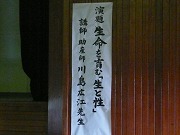 演題 生命を育む「生と性」
講師 助産師 川島広江先生